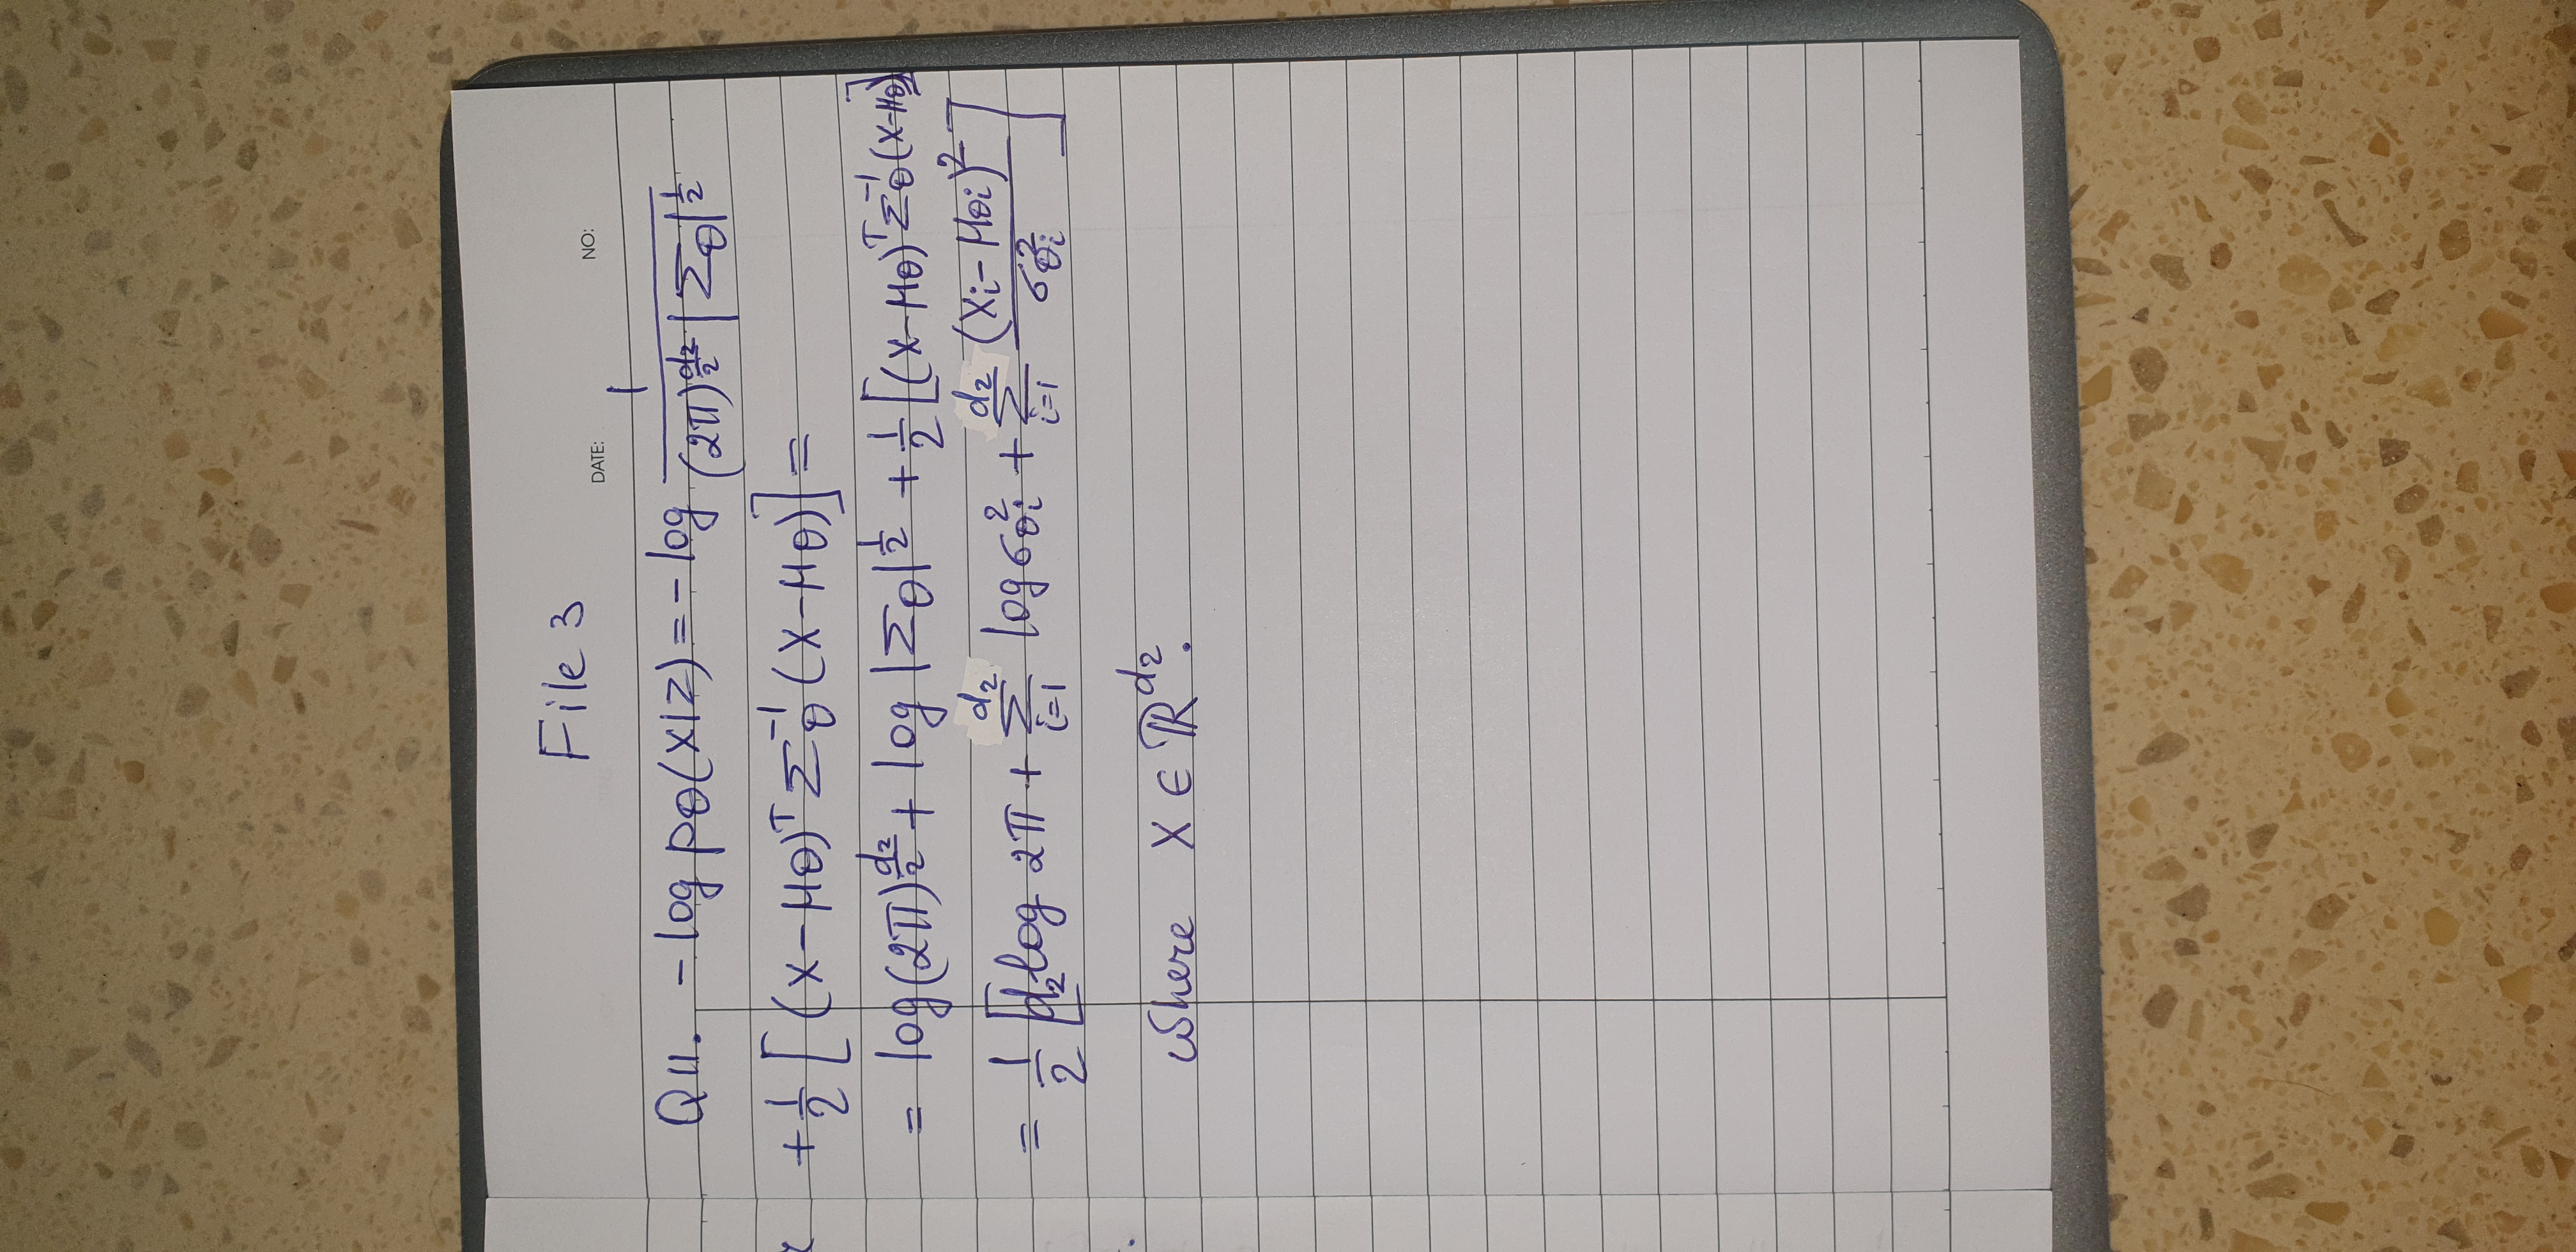 File 3
DATE: NO:
Q11. -log pθ(X|Z) = -log 1 / ((2π)^(d₂/2) |Σθ|^(1/2))
+ 1/2 [(X-μθ)^T Σθ^(-1) (X-μθ)] =
= log(2π)^(d₂/2) + log |Σθ|^(1/2) + 1/2 [(X-μθ)^T Σθ^(-1) (X-μθ)]
= 1/2 [d₂ log 2π + Σ_(i=1)^(d₂) log σ²_θi + Σ_(i=1)^(d₂) (Xi-μθi)² / σ²_θi]
where X ∈ ℝ^(d₂).